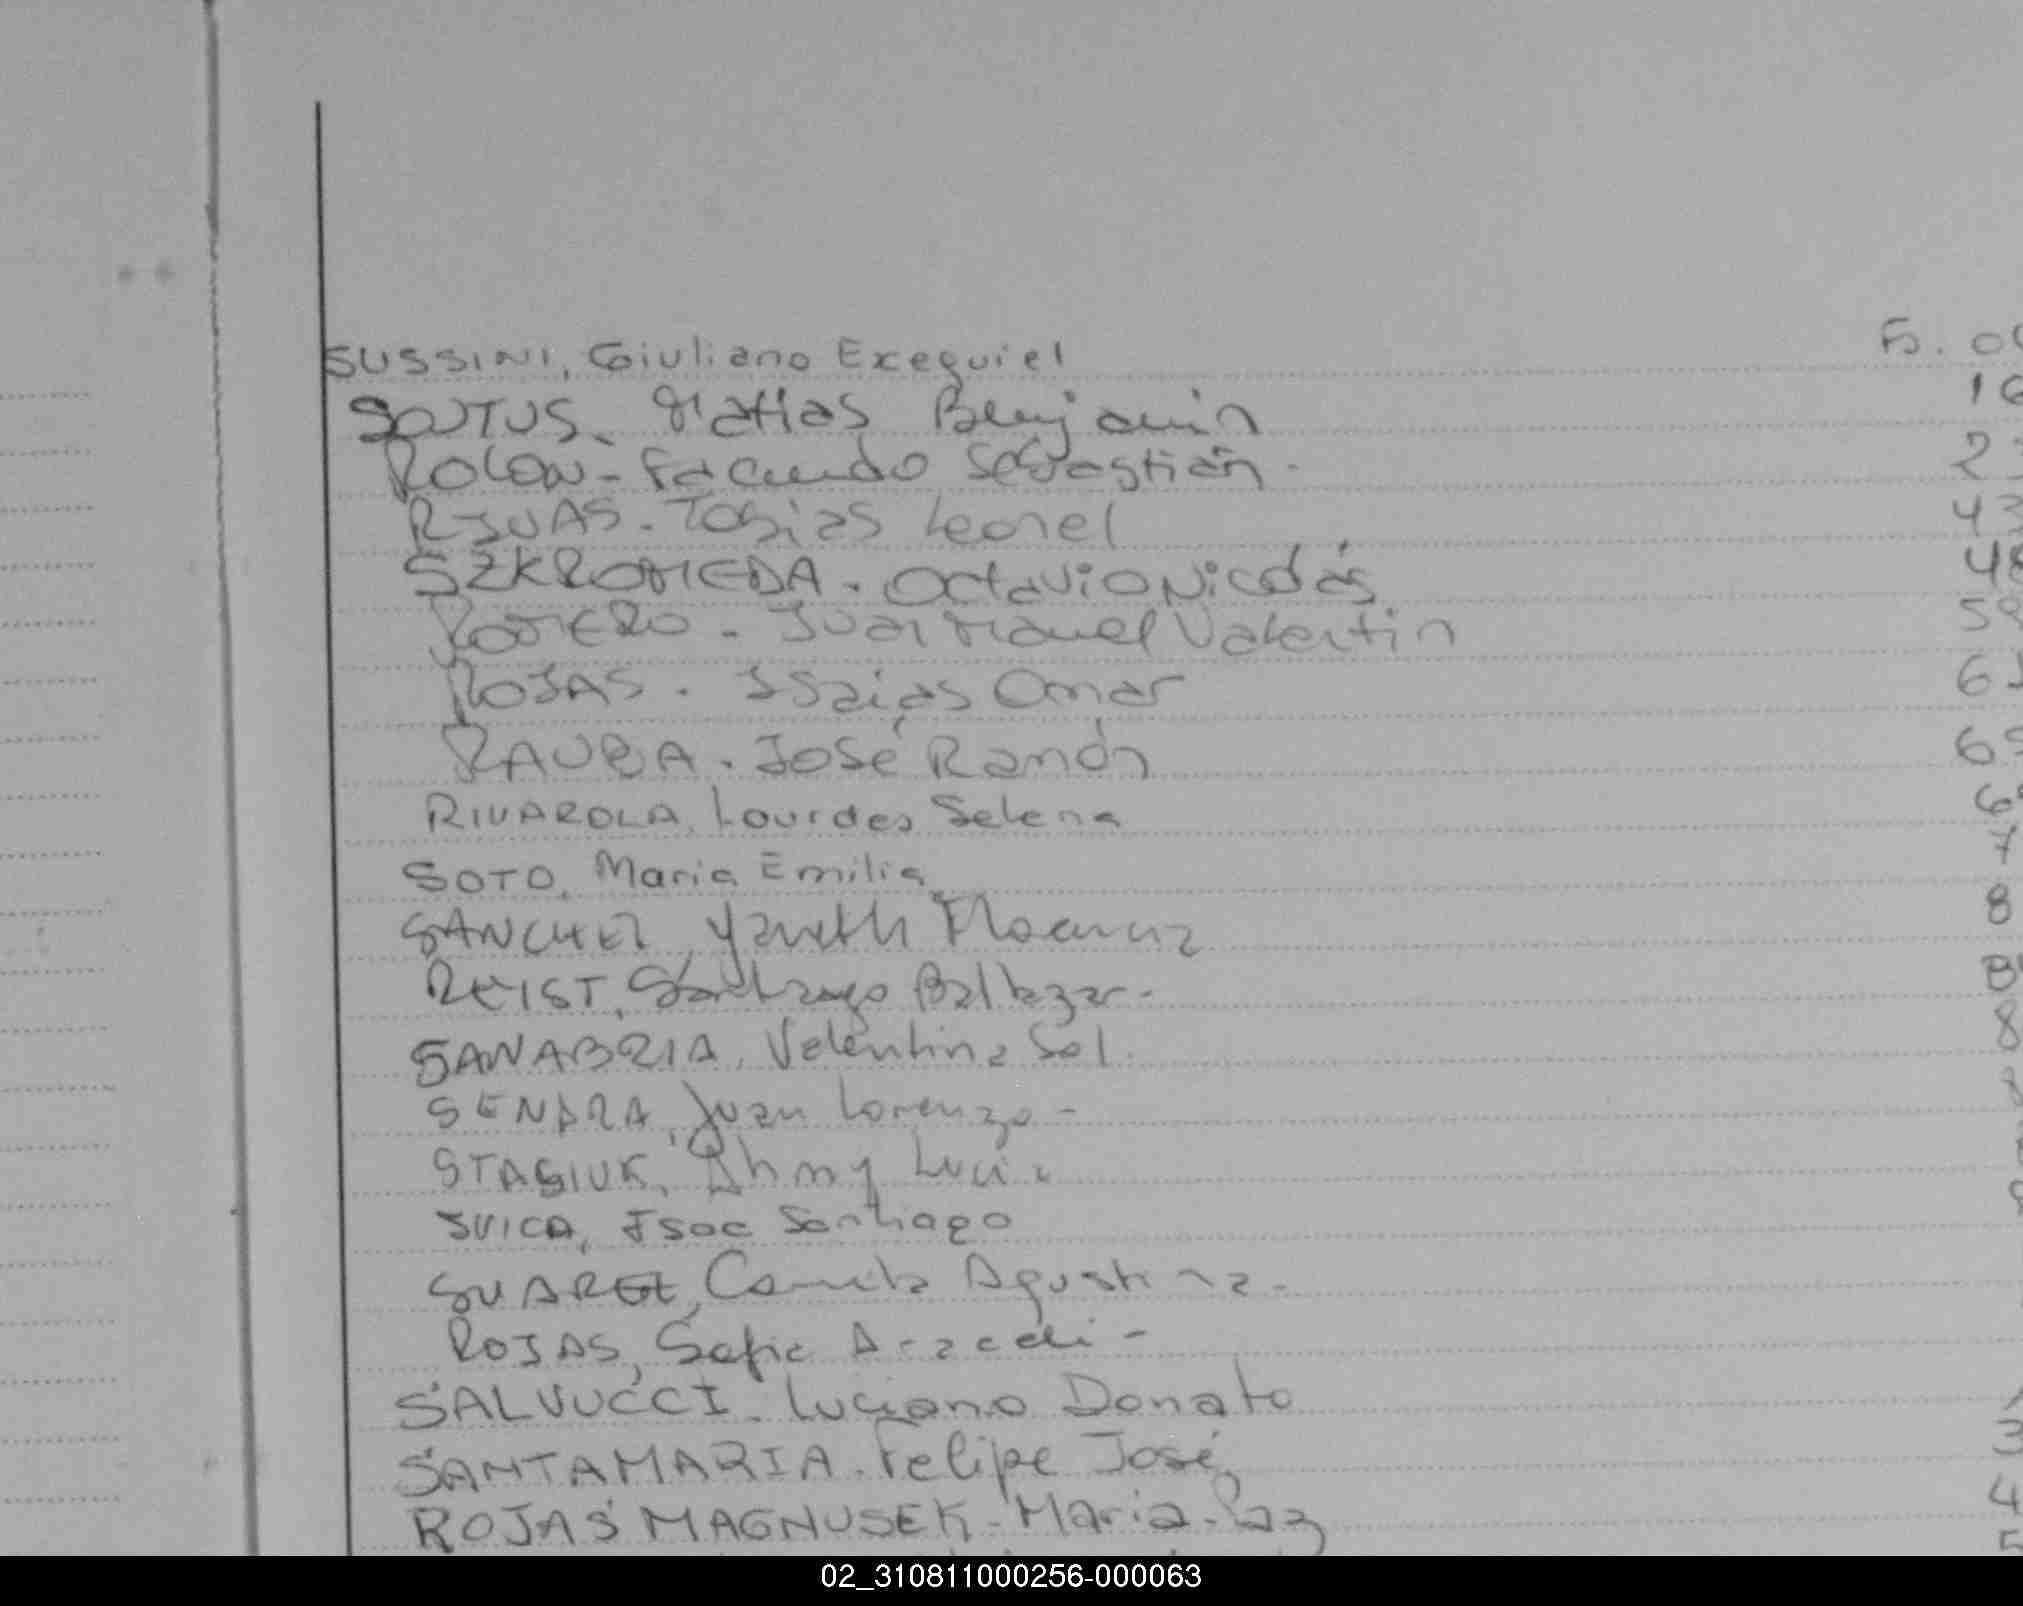 SUSSINI, Giuliano Exequiel Fs. 0
SOUTUS. Matías Benjamin 16
ROLON - Facundo Sebastián. 23
RIVAS. Tobias Leonel 43
SZKROMEDA. Octavio Nicolás 48
ROMERO. Juan Manuel Valentin 59
ROJAS. Isaias Omar 6
RAUBA. José Ramón 6
RIVAROLA, Lourdes Selena 6
SOTO, Maria Emilia 7
SANCHEZ, Yaneth Florencia 8
REIST, Santiago Baltazar - 8
SANABRIA, Valentina Sol. 8
SENARA, Juan Lorenzo -
STASIUK, Ahmy Lucia
SVICA, Isac Santiago
SUAREZ, Camila Agustina -
ROJAS, Sofia Araceli -
SALVUCCI. Luciano Donato
SANTAMARIA. Felipe José 3
ROJAS MAGNUSEK - Maria Paz 4
5
02_310811000256-000063